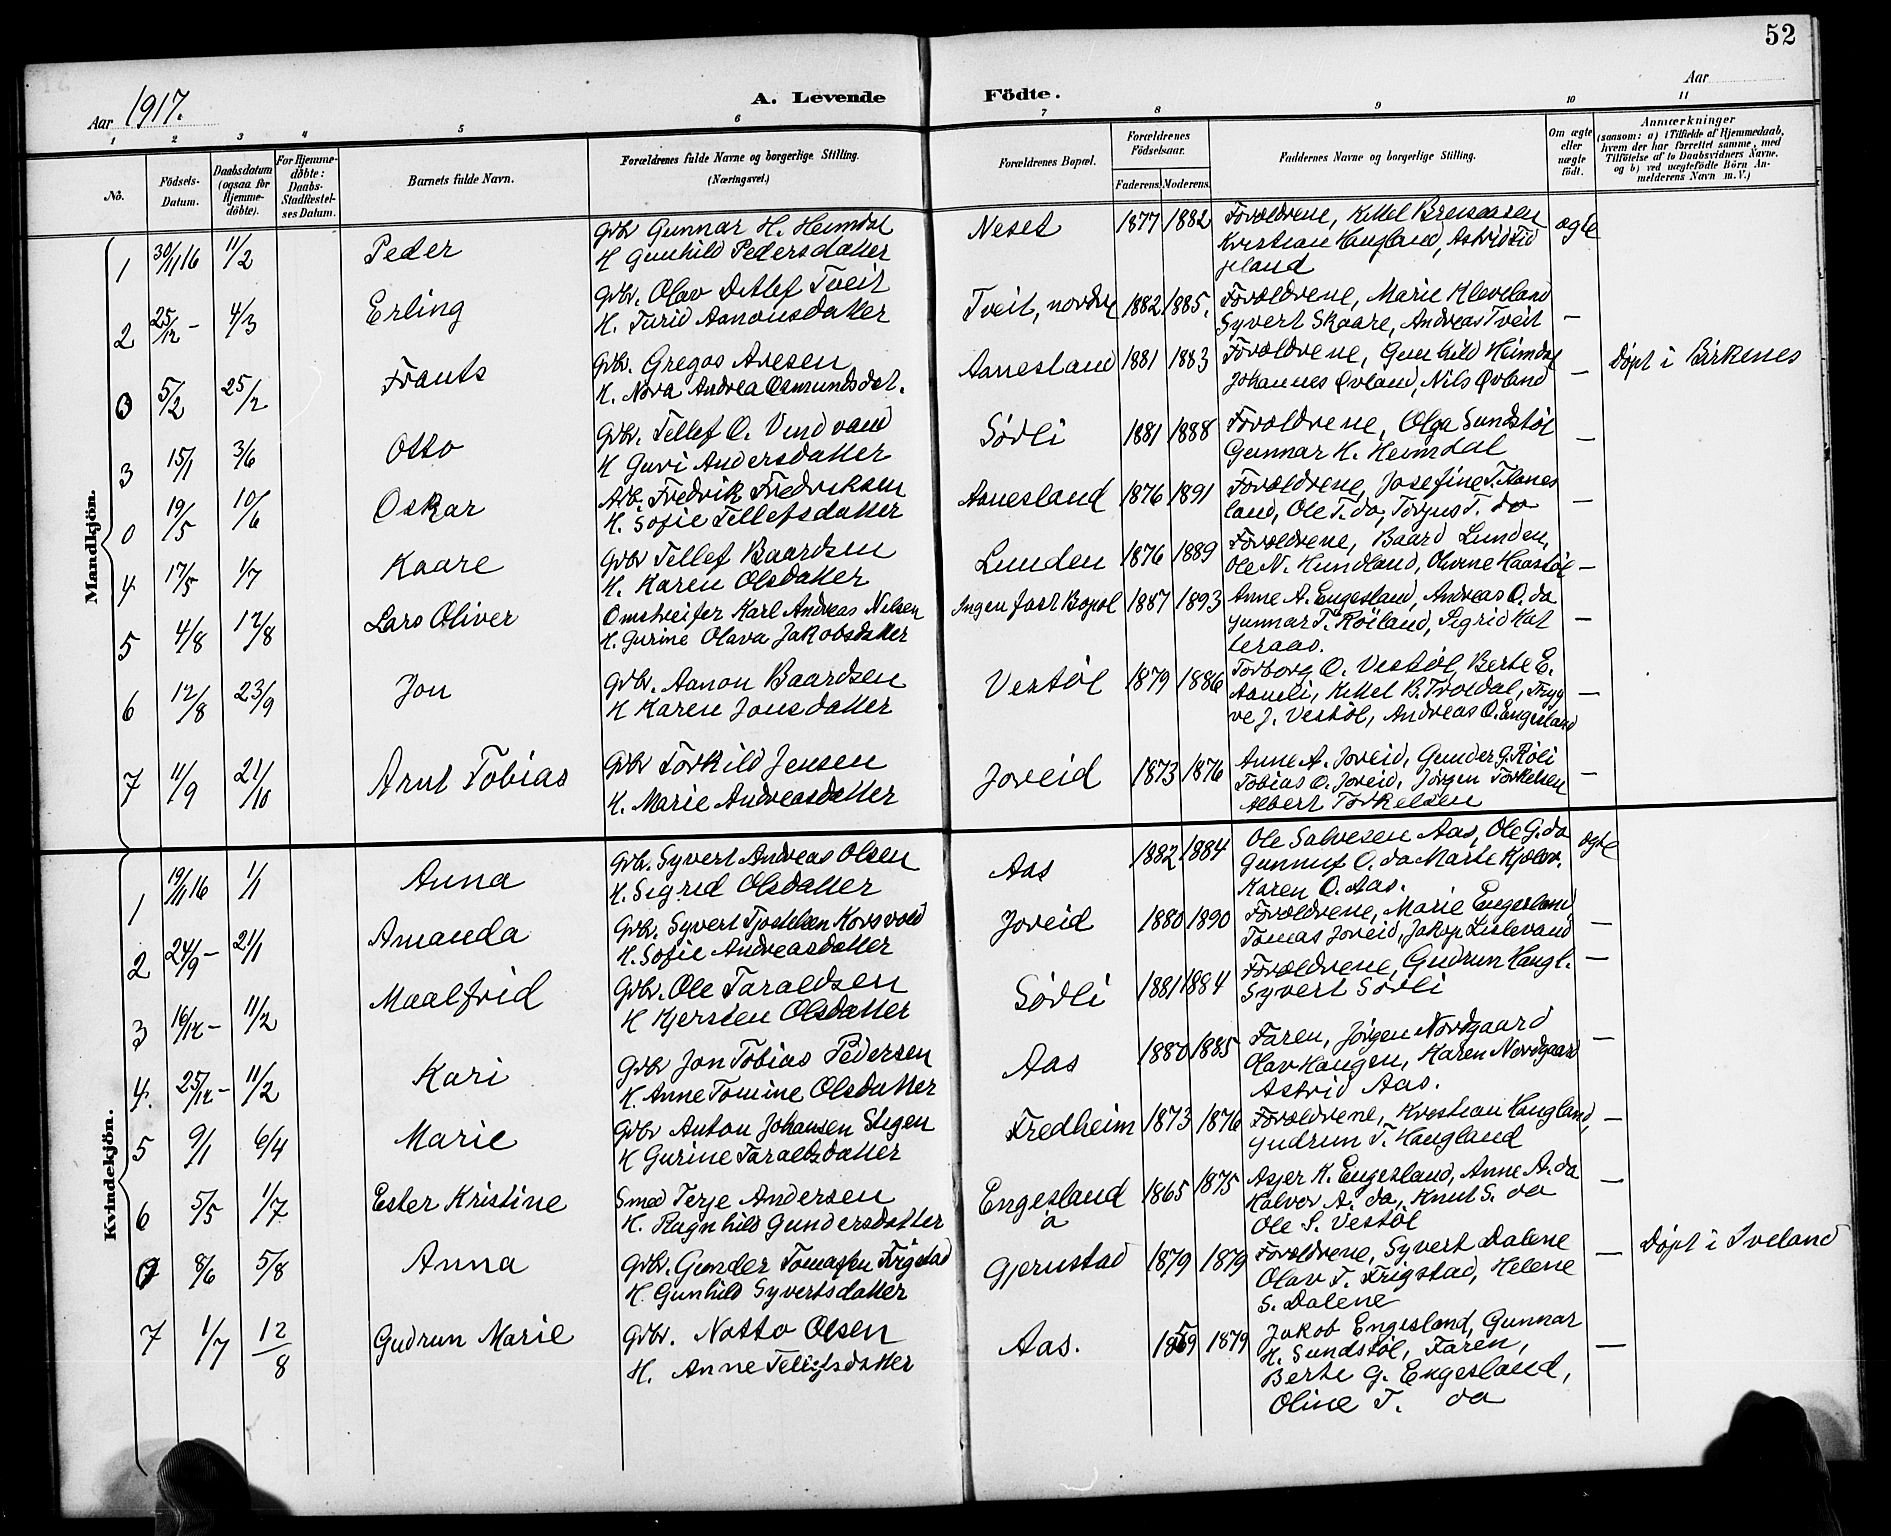 52
Aar 1917.
A. Levende Födte.
Aar
1 2 3 4 5 6 7 8 9 10 11
No.
Födsels-Datum.
Daabsdatum (ogsaa for Hjemme-döbte).
For Hjemme-döbte: Daabs-Stadfæstel-ses Datum.
Barnets fulde Navn.
Forældrenes fulde Navne og borgerlige Stilling. (Næringsvei.)
Forældrenes Bopæl.
Forældrenes Födselsaar.
Faderens. Moderens.
Faddernes Navne og borgerlige Stilling.
Om ægte eller uægte födt.
Anmærkninger
(saasom: a) i Tilfælde af Hjemmedaab, hvem der har forrettet samme, med Tilföielse af to Daabsvidners Navne. og b) ved uægtefödte Börn An-melderens Navn m. V.)
Mandkjön.
1 30/11 16 11/2 Peder
Grbr Gunnar H. Heimdal
H Gunhild Pedersdatter
Neset 1877 1882
Forældrene, Kittel
Kristian Haugland, Astrid
ægte
2 25/12 - 4/3 Erling
Grbr. Olav Detlef Tveit
H. Turid Aanonsdatter
Tveit, nordre 1882 1885.
Forældrene, Marie Kleveland
Syvert Skaare, Andreas Tveit
—
0 5/2 25/2 Frants
Grbr. Gregos Avesen
H. Nora Andrea Osmundsdat.
Aanesland 1881 1883
Forældrene, Gunhild Heimdal
Johannes Øvland, Nils Øvland
— Døpt i Birkenes
3 15/1 3/6 Otto
Grbr. Tellef O. Vindvand
H Guri Andersdatter
Sødli 1881 1888
Forældrene, Olga Sundstøl
Gunnar H. Heimdal
—
0 19/5 10/6 Oskar
Arb. Fredrik Fredriksen
H. Sofie Tellefsdatter
Aanesland 1876 1891
Forældrene, Josefine T. Aanes
land, Ole T. do, Torjus T. do
—
4 17/5 1/7 Kaare
Grbr Tellef Baardsen
H. Karen Olsdatter
Lunden 1876 1889
Forældrene, Baard Lunden,
Ole N. Hundland, Olivine Haastøl
—
5 4/8 12/8 Lars Oliver
Omstreifer Karl Andreas Nilsen
H. Gurine Olava Jakobsdatter
Ingen fast Bopæl 1887 1893
Anne A. Engesland, Andreas O. do
Gunnar T. Røiland, Sigrid Kat
teraas.
—
6 12/8 23/9 Jon
Grbr. Aanon Baardsen
H Karen Jonsdatter
Vestøl 1879 1886
Torborg O. Vestøl, Berte E.
Aaneli, Kittel B. Troldal, Tryg
ve J. Vestøl, Andreas O. Engesland
—
7 11/9 21/10 Arnt Tobias
Grbr Torkild Jensen
H. Marie Andreasdatter
Joveid 1873 1876
Anne A. Joveid, Gunder G. Røli
Tobias O. Joveid, Jørgen Torkelsen
Albert Torkelsen
—
Kvindekjön.
1 19/11 16 1/1 Anna
Grbr. Syvert Andreas Olsen
H. Sigrid Olsdatter
Aas 1882 1884
Ole Salvesen Aas, Ole G. do
Gunnuf O. do Marte Kjølov.
Karen O. Aas.
ægte
2 24/9 - 21/1 Amanda
Grbr. Syvert Korsvold
H. Sofie Andreasdatter
Joveid 1880 1890
Forældrene, Marie Engesland
Tomas Joveid, Jakop Lislevand
—
3 16/12 - 11/2 Maalfrid
Grbr. Ole Taraldsen
H Kjersten Olsdatter
Sødli 1881 1884
Forældrene, Gudrun Haugl.
Syvert Sødli
—
4. 25/12 - 11/2 Kari
Grbr Jon Tobias Pedersen
H. Anne Tomine Olsdatter
Aas 1880 1885
Faren, Jørgen Nordgaard
Olav Haugen, Karen Nordgaard
Astrid Aas.
—
5 9/1 6/4 Marie
Grbr Anton Johansen Stigen
H Gurine Taraldsdatter
Fredheim 1873 1876
Forældrene, Kristian Haugland,
Gudrun T. Haugland
—
6 5/5 1/7 Ester Kristine
Smed Terje Andersen
H. Ragnhild Gundersdatter
Engesland 1865 1875
Asjer K. Engesland, Anne A. do
Halvor A. do, Knut S. do
Ole S. Vestøl
—
0 8/6 5/8 Anna
Grbr. Gunder Tomassen Frigstad
H. Gunhild Syvertsdatter
Gjernstad 1879 1879
Forældrene, Syvert Dalene
Olav T. Frigstad, Helene
S. Dalene
— Døpt i Iveland
7 1/7 12/8 Gudrun Marie
Grbr. Notto Olsen
H. Anne Tellefsdatter
Aas. 1879
Jakob Engesland, Gunnar
H. Sundstøl, Faren,
Berte G. Engesland,
Oline T. do
—